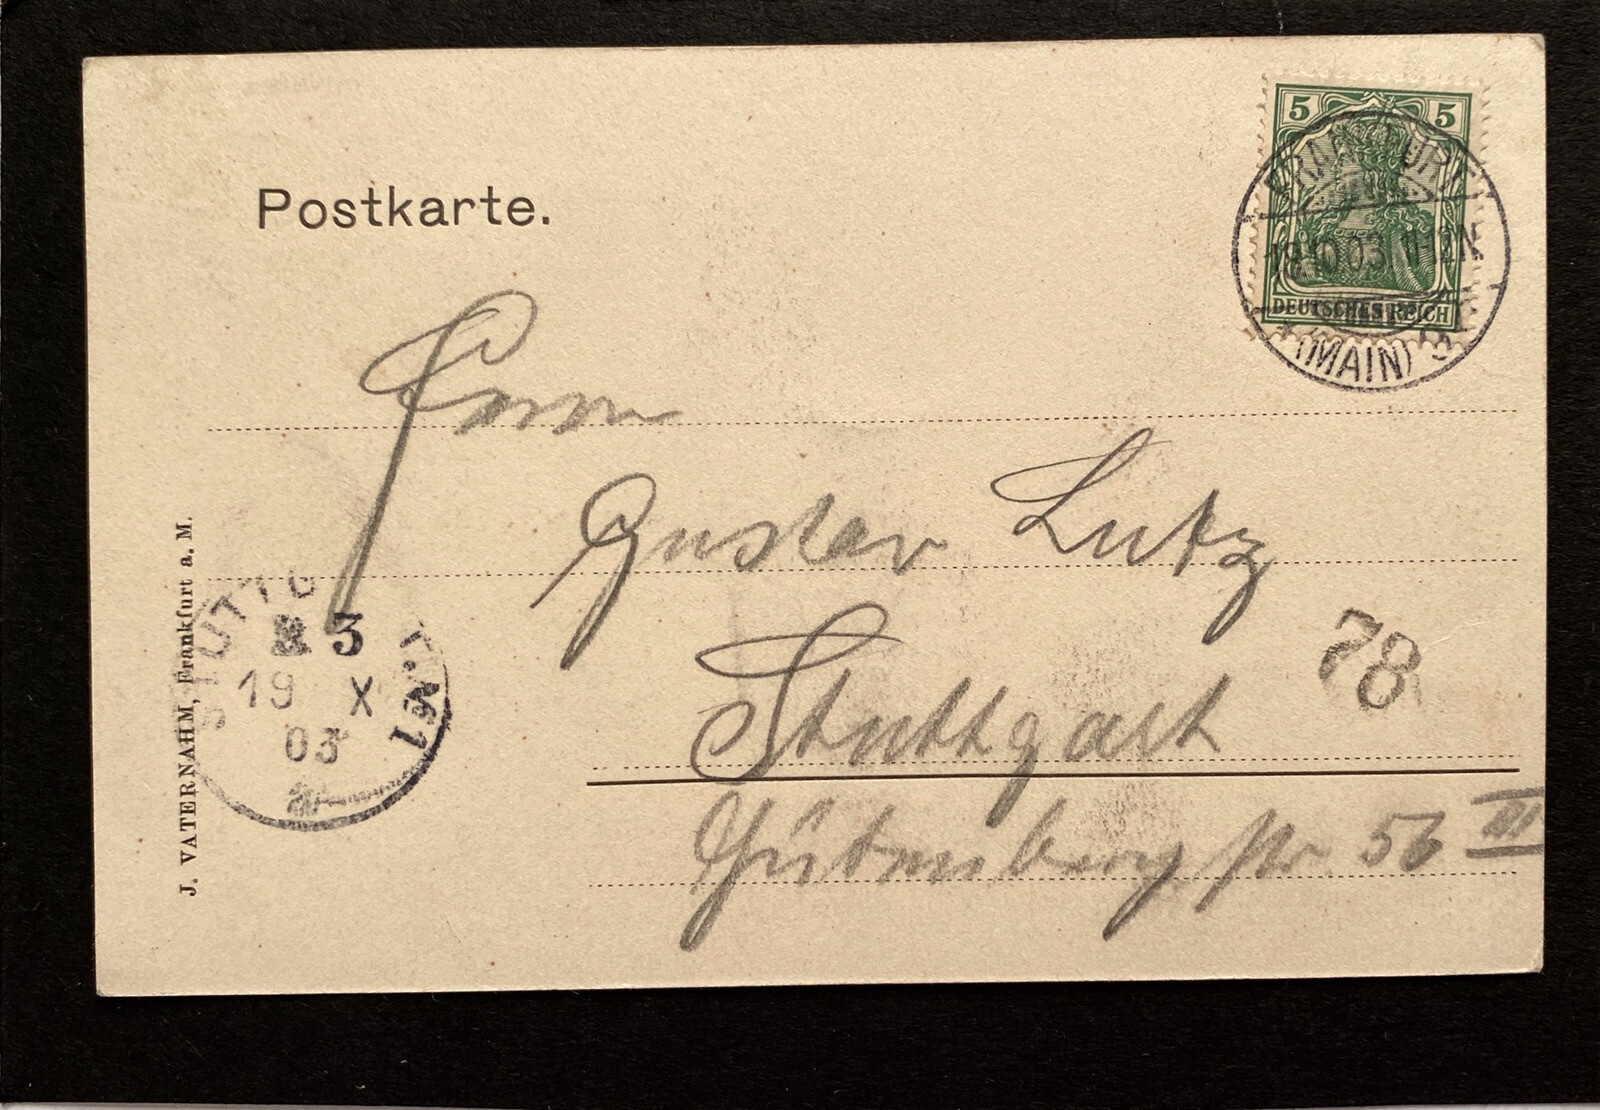 Postkarte.
5 5
DEUTSCHES REICH
FRANKFURT
19.10.03 12N
(MAIN)
Herrn
Gustav Lutz
Stuttgart
78
Gutenbergstr 56 III
STUTTG
3
19 X
03
J. VATERNAHM, Frankfurt a. M.